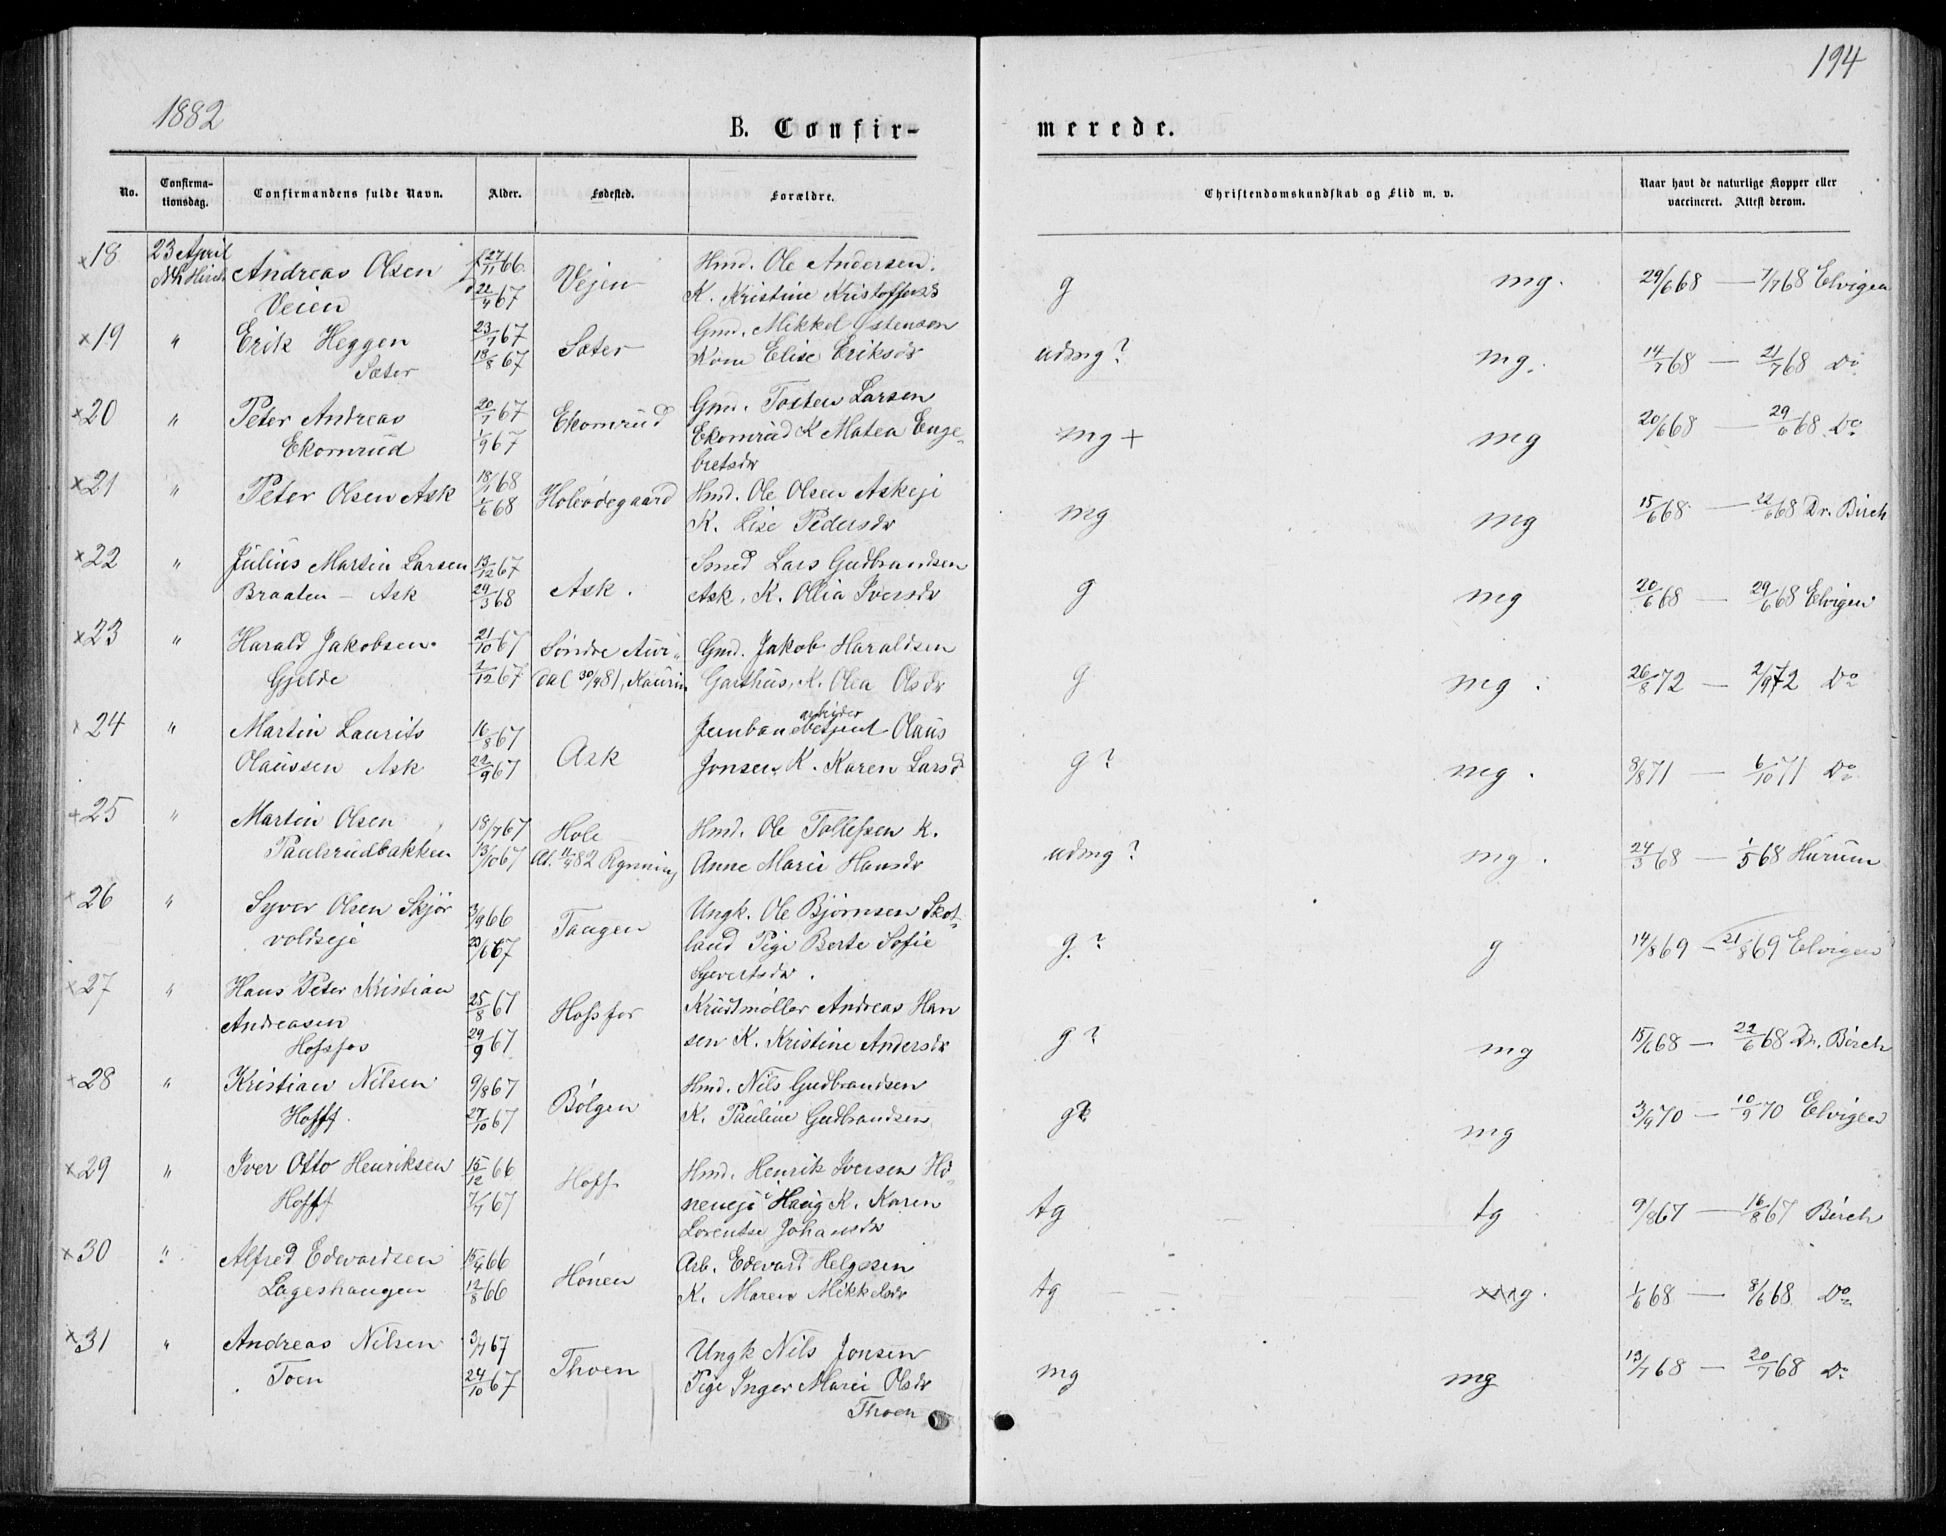 194
1882
B. Confir-
merede.
No.
Confirma-
tionsdag.
Confirmandens fulde Navn.
Alder.
Fødested.
Forældre.
Christendomskundskab og Flid m. v.
Naar havt de naturlige Kopper eller
vaccineret. Attest derom.
×18 23 April Andreas Olsen f 27/11 66 Vejen Hmd. Ole Andersen. g mg. 29/6 68 — 7/7 68 Elvigen
Veien 22/4 67 K. Kristine Kristoffersd
×19 " Erik Heggen 23/7 67 Sæter Gmd. Mikkel Østensen udmg? mg. 14/7 68 — 21/7 68 Do
Sæter 18/8 67 Kone Elise Eriksdr
×20 " Peter Andreas 20/7 67 Ekornrud Gmd. Tosten Larsen mg + mg 20/6 68 — 29/6 68 Do
Ekornrud 1/9 67 Ekornrud K Matea Enge-
bretsdr
×21 " Peter Olsen Ask 18/4 68 Holeødegaard Hmd. Ole Olsen Askeje mg mg 15/6 68 — 22/6 68 Dr. Birch
1/6 68 K. Lise Pedersdr
×22 " Julius Martin Larsen 19/12 67 Ask. Smed Lars Gudbrandsen g mg 20/6 68 — 29/6 68 Elvigen
Braaten — Ask 29/3 68 Ask. K. Ollia Iversdr
×23 " Harald Jakobsen 21/10 67 Søndre Aur- Gmd. Jakob Haraldsen g mg. 26/8 72 — 2/9 72 Do
Gjelde 2/12 67 dal 30/4 81, Kaurin Garthus, K. Olea Olsdr
×24 " Martin Laurits 16/8 67 Ask Jernbane arbeider betjent Olaus g? mg. 8/8 71 — 6/10 71 Do
Olaussen Ask 22/9 67 Jonsen, K. Karen Larsd
×25 " Martin Olsen 18/7 67 Hole Hmd. Ole Tollefsen K. udmg? mg. 24/3 68 — 1/5 68 Hurum
Paulsrudbakken 13/10 67 At. 11/4 82 Rynning Anne Marie Hansdr
×26 " Syver Olsen Skjør 3/9 66 Tangen Ungk. Ole Bjørnsen Skot- g.? g 14/8 69 — 21/8 69 Elvigen
voldseje 23/6 67 land Pige Berte Sofie
Syvertsdr.
×27 " Hans Peter Kristian 25/8 67 Hofsfos Krudtmøller Andreas Han g? mg 15/6 68 — 22/6 68 Dr. Birch
Andreasen 29/9 67 sen K. Kristine Andersdr
Hofsfos
×28 " Kristian Nilsen 9/8 67 Bølgen Hmd. Nils Gudbrandsen g? mg 3/9 70 — 10/9 70 Elvigen
Hoff. 27/10 67 K. Pauline Gudbrandsen
×29 " Iver Otto Henriksen 15/12 66 Hoff Hmd. Henrik Iversen Hø- tg tg 9/8 67 — 16/8 67 Birch
Hoff 7/4 67 neneje Haug K. Karen
Lorentse Johansdr
×30 " Alfred Edevardsen 15/4 66 Hønen Arb. Edevard Helgesen tg g. 1/6 68 — 8/6 68 Do
Lageshaugen 12/8 66 K. Maren Mikkelsdr
×31 " Andreas Nilsen 3/7 67 Thoen Ungk Nils Jonsen mg mg 13/7 68 — 20/7 68 Do
Toen 24/10 67 Pige Inger Marie Olsdr
Thoen